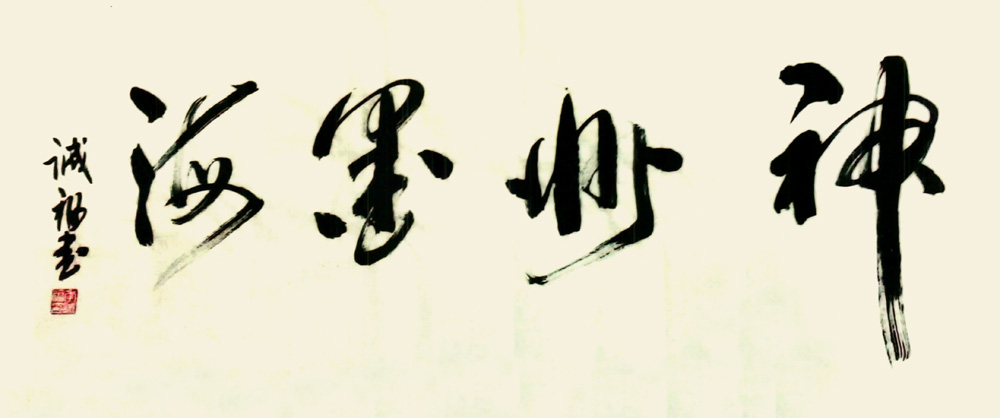 神州墨海
诚福书